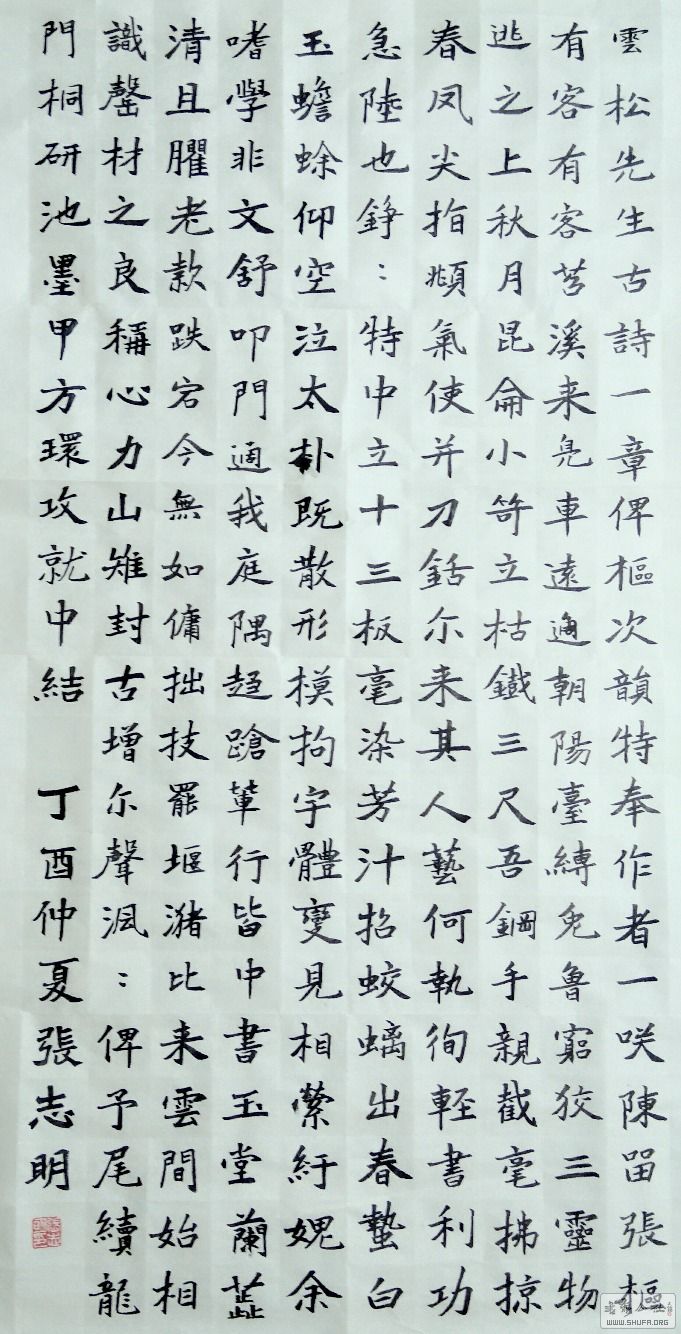 雲松先生古詩一章俾樞次韻特奉作者一咲陳畱張樞
有客有客苕溪来鳧車遠過朝陽臺縛兔魯窮狡三靈物
逃之上秋月昆侖小笴立枯鐵三尺吾鋼手親截毫拂掠
春凤尖指頫氣使并刀銛尓来其人藝何執徇輕書利功
急陸也錚：特中立十三板毫染芳汁招蛟螭出春蟄白
玉蟾蜍仰空泣太朴既散形模拘字體變見相縈紆媿余
嗜學非文舒叩門適我庭隅趋蹌輩行皆中書玉堂蘭
清且臞老款跌宕今無如傭拙技罷堰瀦比来雲間始相
識罄材之良稱心力山雉封古增尓聲渢：俾予尾續龍
門桐研池墨甲方環攻就中結 丁酉仲夏張志明
WWW.SHUFA.ORG